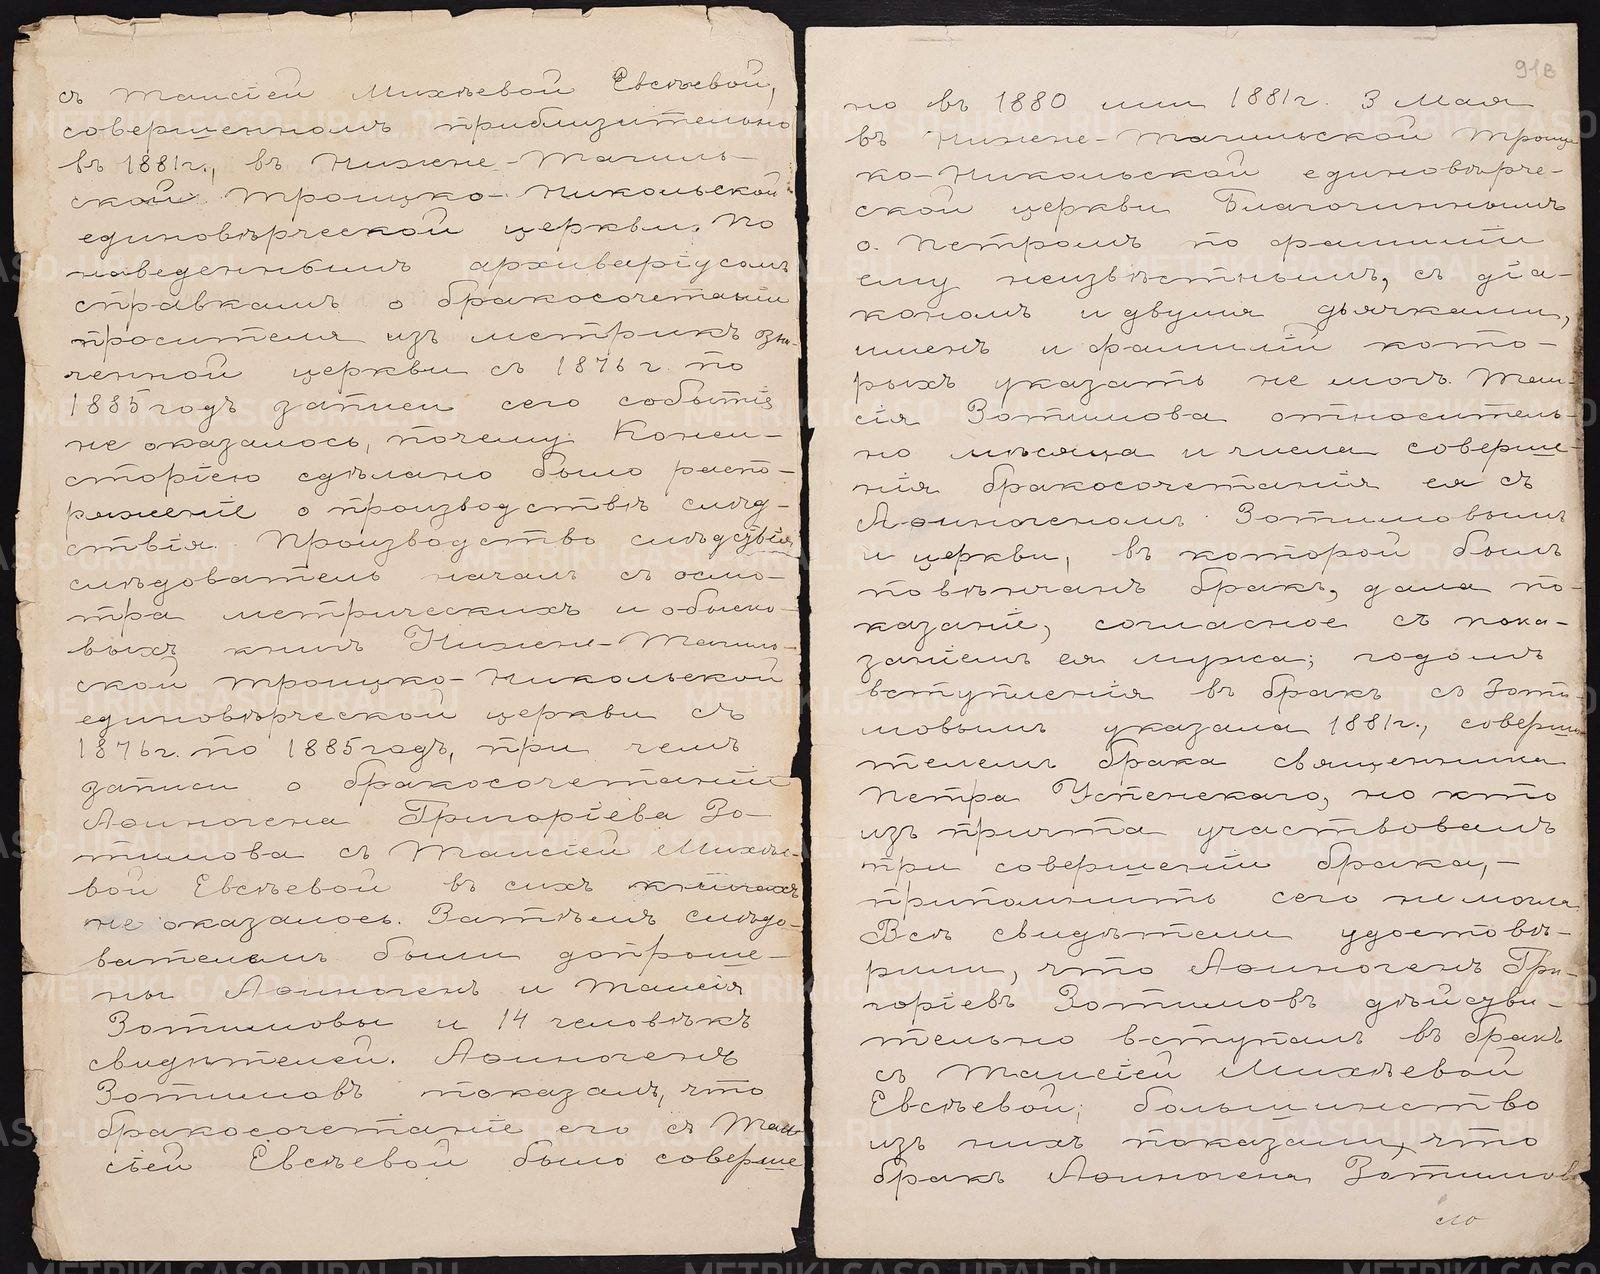 съ Таисіей Михѣевой Евсѣевой,
совершенномъ приблизительно
въ 1881г., въ Нижне-Тагиль-
ской Троицко-Никольской
единовѣрческой церкви. По
наведеннымъ архиваріусомъ
справкамъ о бракосочетаніи
просителя изъ метрикъ озна-
ченной церкви съ 1876 г. по
1885 годъ записи сего событія
не оказалось, почему Конси-
сторіею сдѣлано было распо-
ряженіе о производствѣ слѣд-
ствія. Производство слѣдствія
слѣдователь началъ съ осмо-
тра метрическихъ и обыско-
выхъ книгъ Нижне-Тагиль-
ской Троицко-Никольской
единовѣрческой церкви съ
1876г. по 1885 годъ, при чемъ
записи о бракосочетаніи
Аѳиногена Григоріева Зо-
тимова съ Таисіей Михѣе-
вой Евсѣевой въ сихъ книгахъ
не оказалось. Затѣмъ слѣдо-
вателемъ были допроше-
ны Аѳиногенъ и Таисія
Зотимовы и 14 человѣкъ
свидѣтелей. Аѳиногенъ
Зотимовъ показалъ, что
бракосочетаніе его съ Таи-
сіей Евсѣевой было соверше
91в
но въ 1880 или 1881г. 3 Мая
въ Нижне-Тагильской Троиц
ко-Никольской единовѣрче-
ской церкви Благочиннымъ
о. Петромъ по фамиліи
ему неизвѣстнымъ, съ діа-
кономъ и двумя дьячками,
именъ и фамилій кото-
рыхъ указать не могъ. Таи-
сія Зотимова относитель-
но мѣсяца и числа соверше-
нія бракосочетанія ея съ
Аѳиногеномъ Зотимовымъ
и церкви, въ которой былъ
повѣнчанъ бракъ, дала по-
казаніе, согласное съ пока-
заніемъ ея мужа; годомъ
вступленія въ бракъ съ Зоти-
мовымъ указала 1881г., соверши
телемъ брака священника
Петра Успенскаго, но кто
изъ причта участвовалъ
при совершеніи брака, -
припомнить сего не могла.
Всѣ свидѣтели удостовѣ-
рили, что Аѳиногенъ Гри-
горіевъ Зотимовъ дѣйстви-
тельно вступалъ въ бракъ
съ Таисіей Михѣевой
Евсѣевой; большинство
изъ нихъ показали, что
бракъ Аѳиногена Зотимова